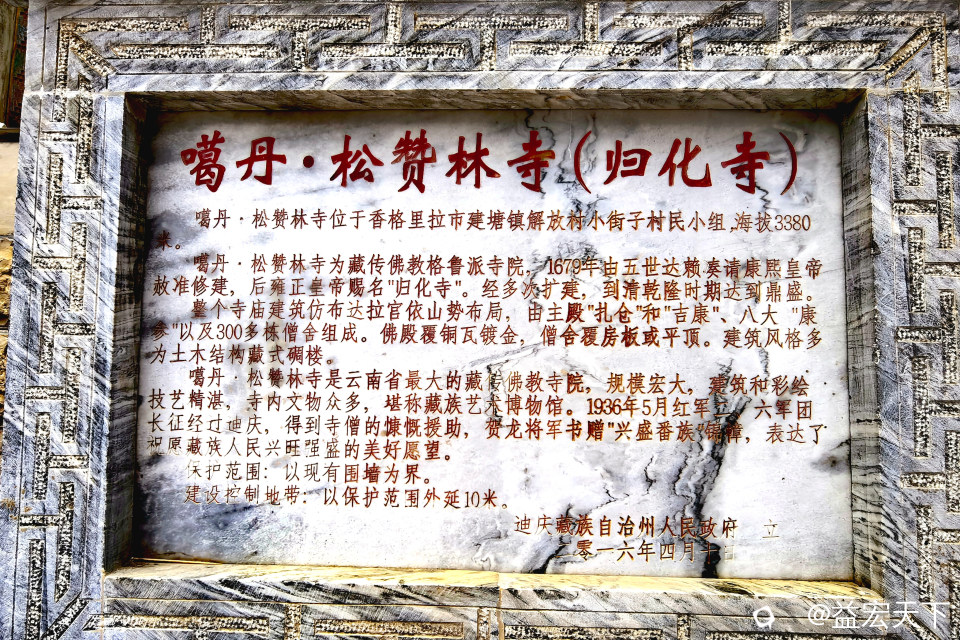 噶丹·松赞林寺(归化寺)
噶丹·松赞林寺位于香格里拉市建塘镇解放村小街子村民小组,海拔3380
米。
噶丹·松赞林寺为藏传佛教格鲁派寺院，1679年由五世达赖奏请康熙皇帝
敕准修建，后雍正皇帝赐名"归化寺"。经多次扩建，到清乾隆时期达到鼎盛。
整个寺庙建筑仿布达拉宫依山势布局，由主殿"扎仓"和"吉康"、八大 "康
参"以及300多栋僧舍组成。佛殿覆铜瓦镀金，僧舍覆房板或平顶。建筑风格多
为土木结构藏式碉楼。
噶丹·松赞林寺是云南省最大的藏传佛教寺院，规模宏大，建筑和彩绘
技艺精湛，寺内文物众多，堪称藏族艺术博物馆。1936年5月红军二、六军团
长征经过迪庆，得到寺僧的慷慨援助，贺龙将军书赠"兴盛番族"锦幛，表达了
祝愿藏族人民兴旺强盛的美好愿望。
保护范围：以现有围墙为界。
建设控制地带：以保护范围外延10米。
迪庆藏族自治州人民政府 立
二零一六年四月 日
@益宏天下